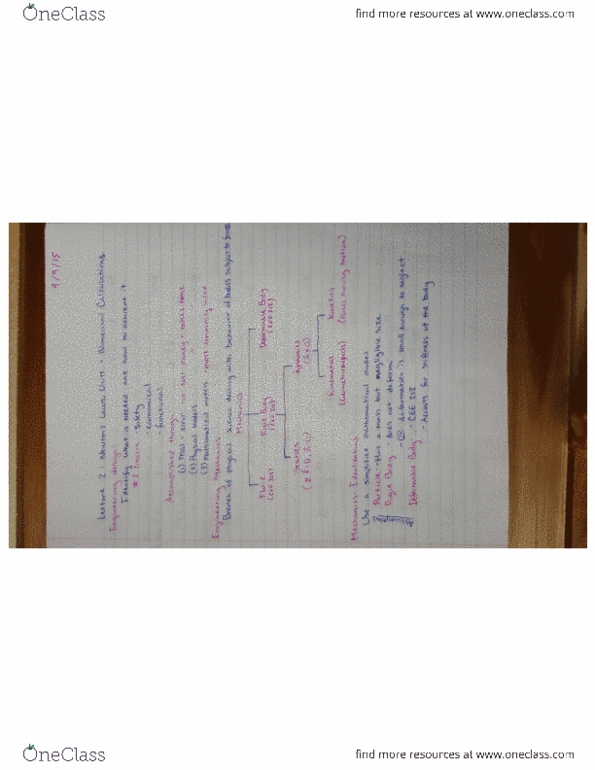 OneClass
find more resources at www.oneclass.com
9/9/15
Lecture 2: Newton's Laws, Units + Numerical Calculations
Engineering design:
Identify what is needed and how to achieve it
#1 Concern - safety
- economical
- functional
Accomplished through:
(1) Trial + error - costs money + takes time
(2) Physical models
(3) Mathematical models - most commonly used
Engineering Mechanics
Branch of physical science dealing with behavior of bodies subject to forces
Mechanics
Fluid
Rigid Body
Deformable Body
Statics
Dynamics
Kinematics
Kinetics
(forces during motion)
Mechanics Idealizations
Use a simplified mathematical model
Particle - Has a mass but negligible size
Rigid Body - does not deform
- OR deformation is small enough to neglect
Deformable Body - CEE 212
- Accounts for stiffness of the body
OneClass
find more resources at www.oneclass.com